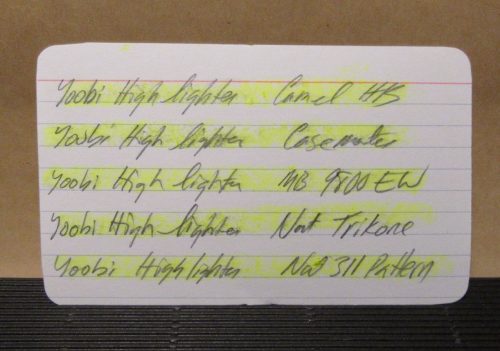 Yoobi Highlighter Camel HB
Yoobi Highlighter Casemate
Yoobi Highlighter MB 9800 EW
Yoobi Highlighter Nat Trikone
Yoobi Highlighter Nat 311 Pattern